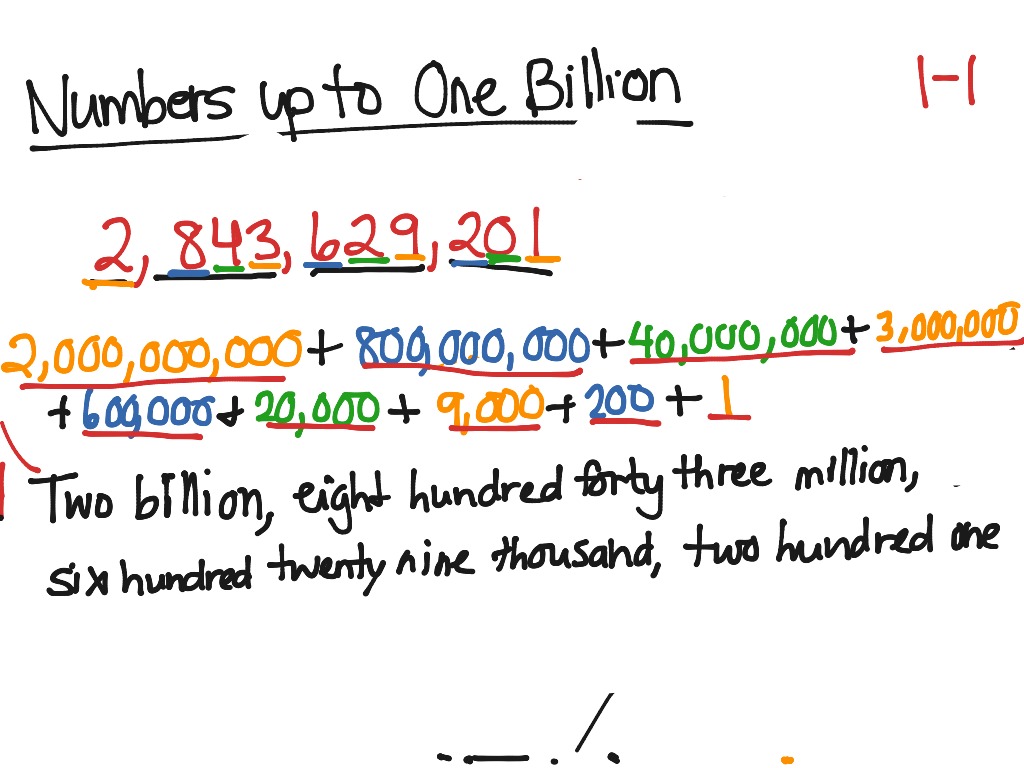 Numbers up to One Billion
1-1
2,843,629,201
2,000,000,000 + 800,000,000 + 40,000,000 + 3,000,000
+ 600,000 + 20,000 + 9,000 + 200 + 1
Two billion, eight hundred forty three million,
six hundred twenty nine thousand, two hundred one